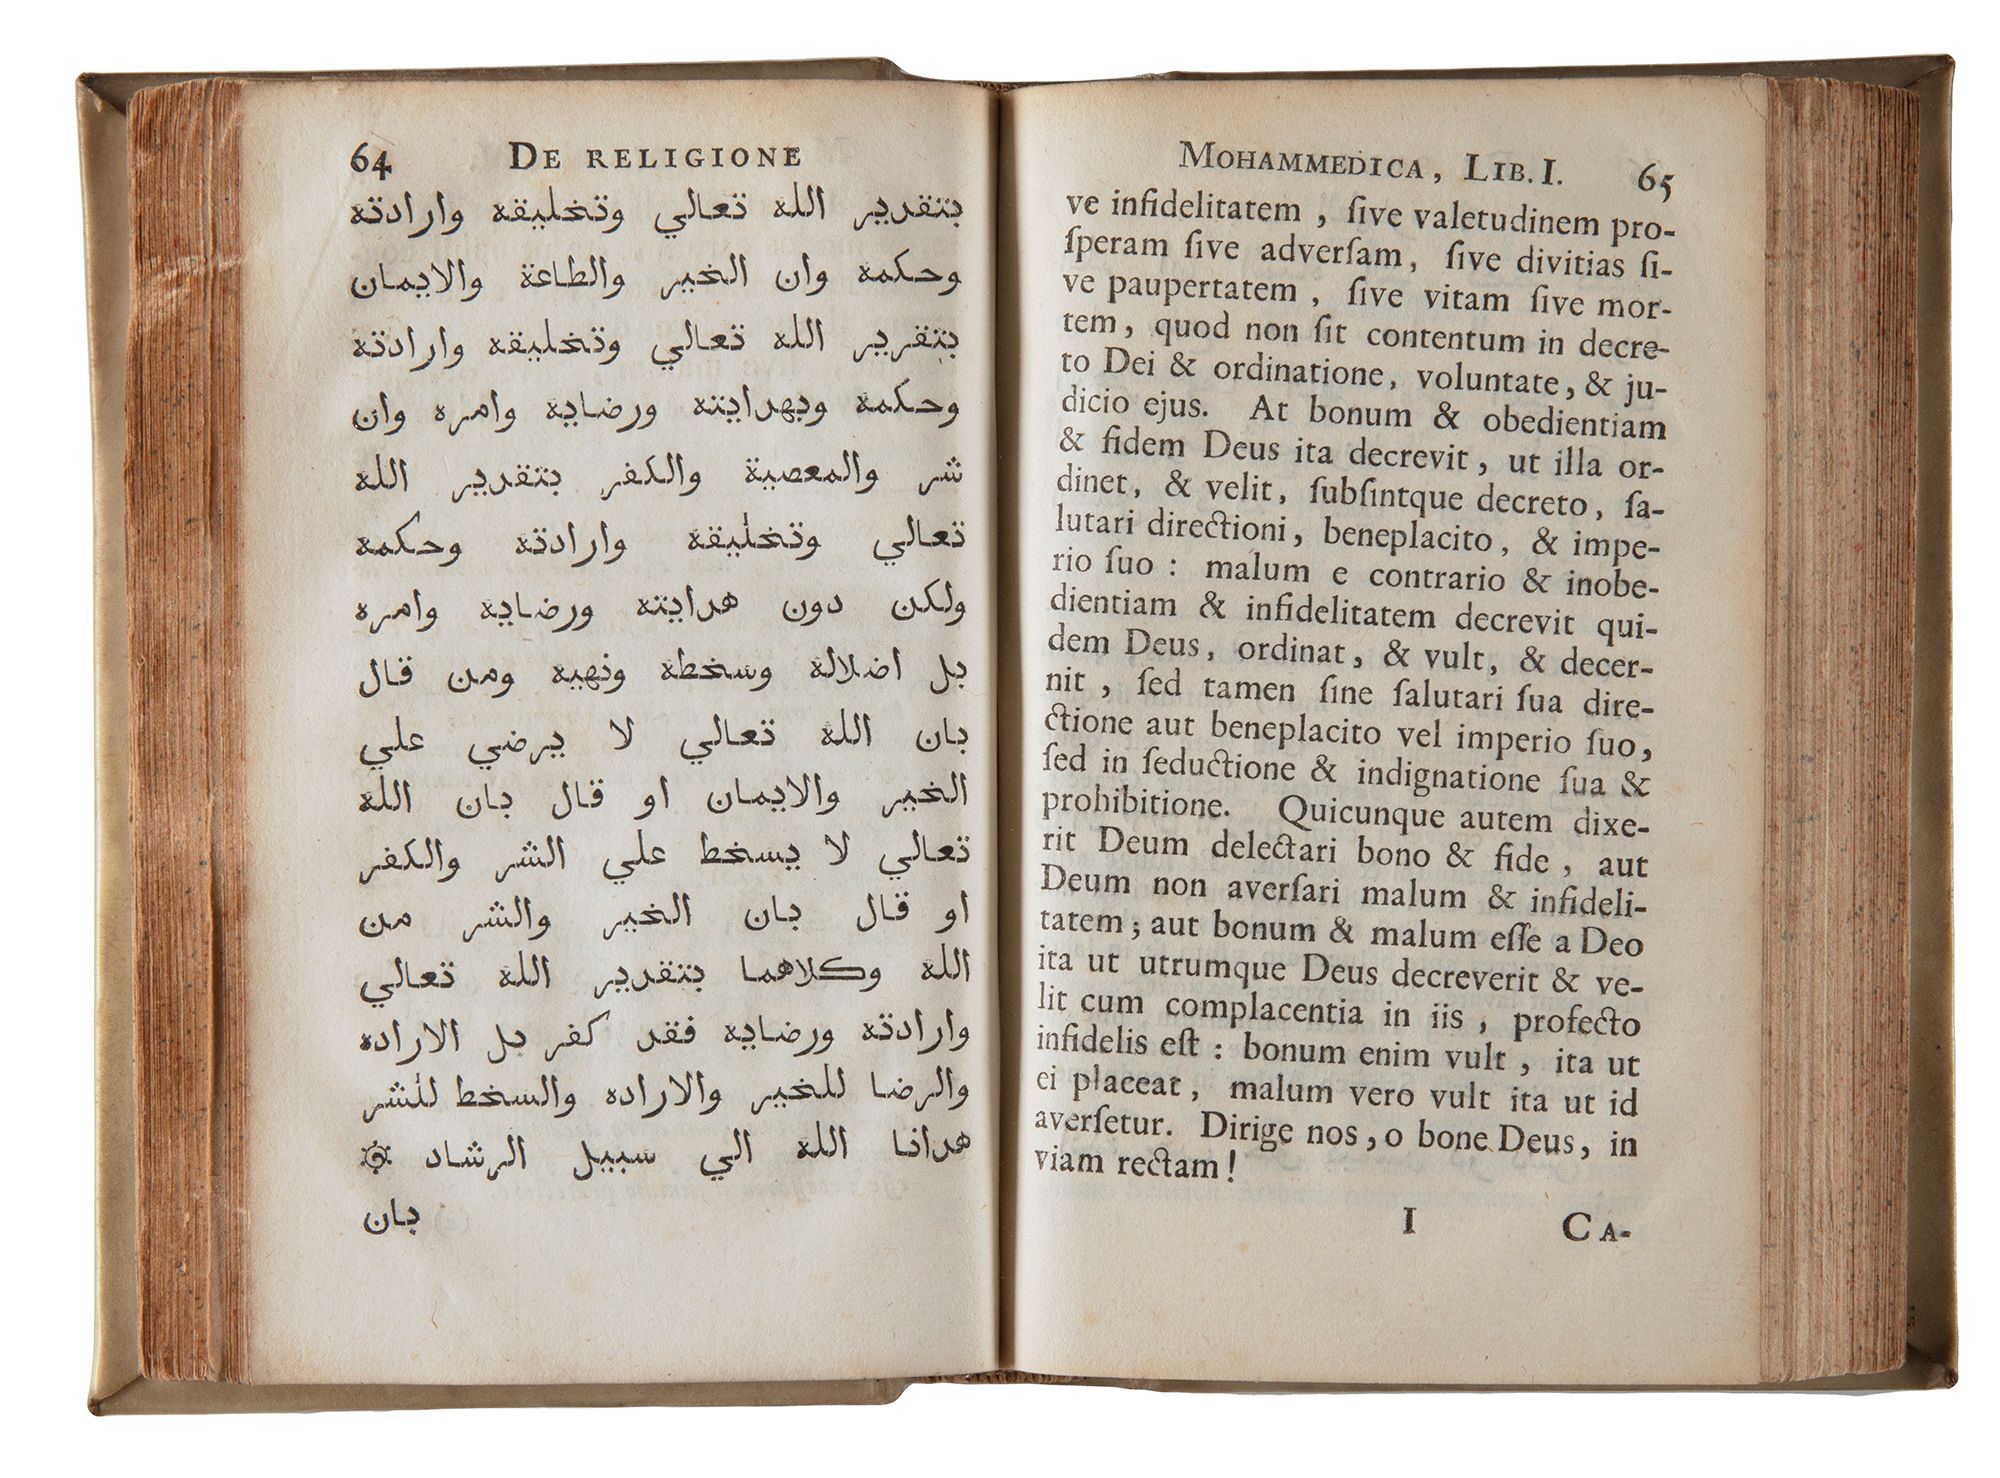 64 DE RELIGIONE
بتقدير الله تعالي وتخليقه وارادته
وحكمه وان الخير والطاعة والايمان
بتقرير الله تعالي وتخليقه وارادته
وحكمه وبهدايته ورضايه وامره وان
شر والمعصية والكفر بتقدير الله
تعالي وتخليقه وارادته وحكمه
ولكن دون هدايته ورضايه وامره
بل اضلاله وسخطه ونهيه ومن قال
بان الله تعالي لا يرضي علي
الخير والايمان او قال بان الله
تعالي لا يسخط علي الشر والكفر
او قال بان الخير والشر من
الله وكلاهما بتقدير الله تعالي
وارادته ورضايه فقد كفر بل الاراده
والرضا للخير والاراده والسخط للشر
هدانا الله الي سبيل الرشاد
بان
MOHAMMEDICA, LIB. I. 65
ve infidelitatem, ſive valetudinem pro-
ſperam ſive adverſam, ſive divitias ſi-
ve paupertatem, ſive vitam ſive mor-
tem, quod non ſit contentum in decre-
to Dei & ordinatione, voluntate, & ju-
dicio ejus. At bonum & obedientiam
& fidem Deus ita decrevit, ut illa or-
dinet, & velit, ſubſintque decreto, ſa-
lutari directioni, beneplacito, & impe-
rio ſuo: malum e contrario & inobe-
dientiam & infidelitatem decrevit qui-
dem Deus, ordinat, & vult, & decer-
nit, ſed tamen ſine ſalutari ſua dire-
ctione aut beneplacito vel imperio ſuo,
ſed in ſeductione & indignatione ſua &
prohibitione. Quicunque autem dixe-
rit Deum delectari bono & fide, aut
Deum non averſari malum & infideli-
tatem; aut bonum & malum eſſe a Deo
ita ut utrumque Deus decreverit & ve-
lit cum complacentia in iis, profecto
infidelis eſt: bonum enim vult, ita ut
ei placeat, malum vero vult ita ut id
averſetur. Dirige nos, o bone Deus, in
viam rectam!
I CA-